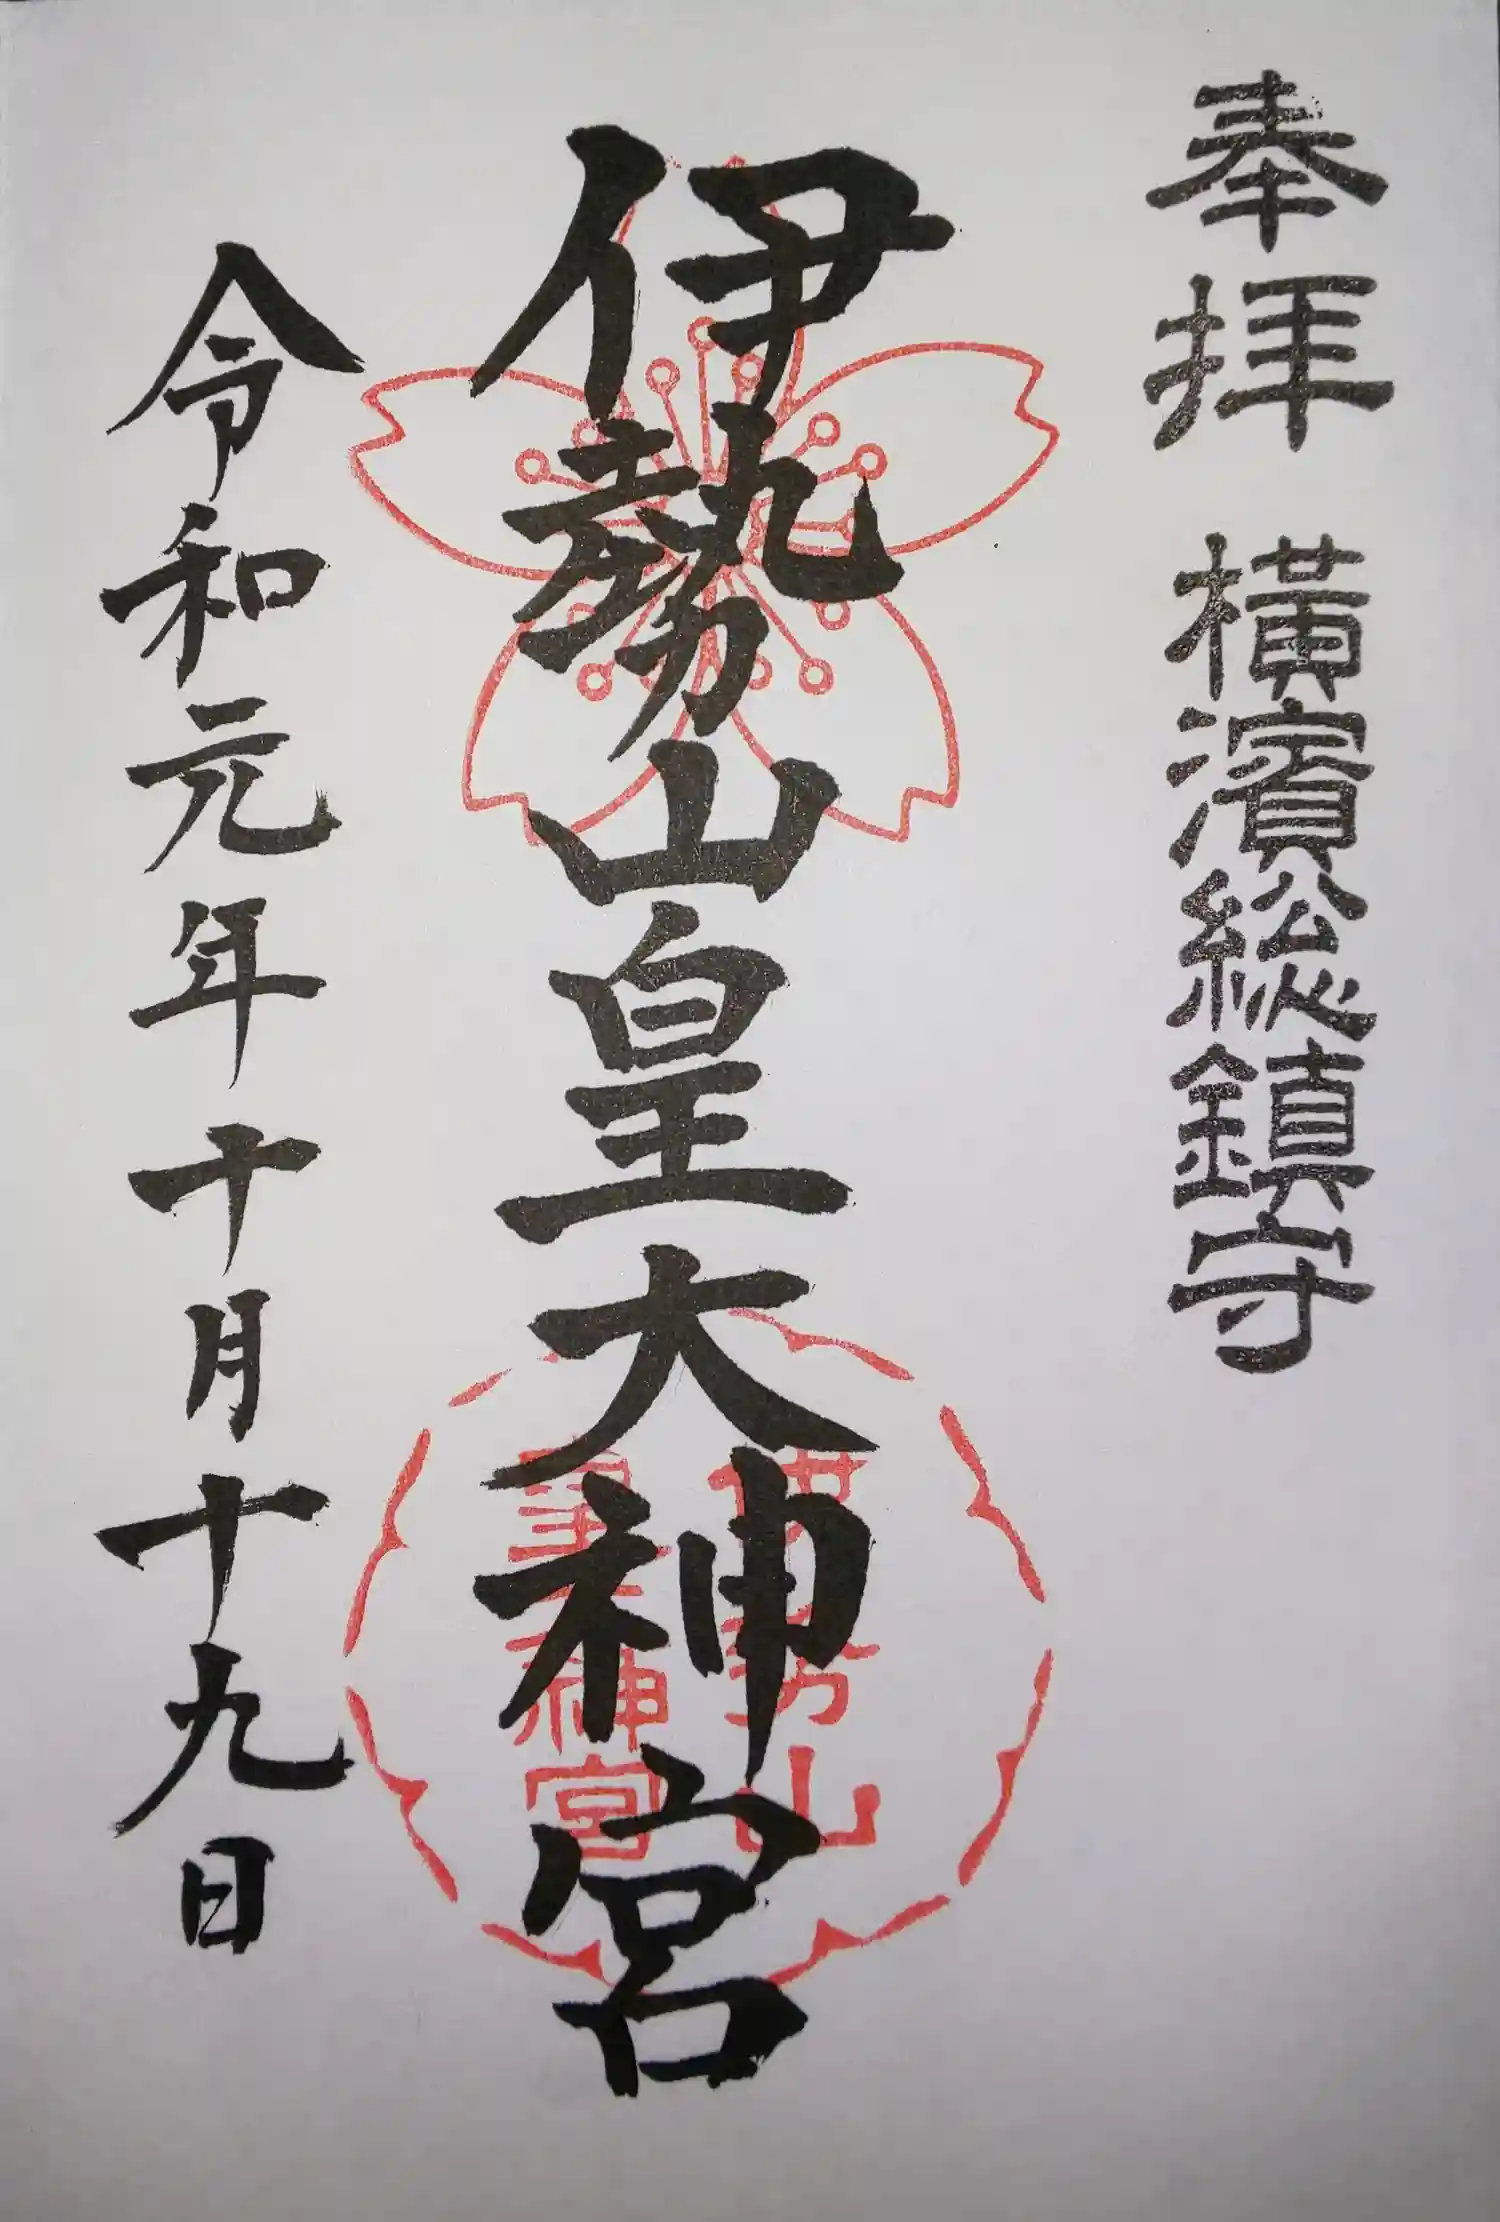 奉拝 横濱総鎮守
伊勢山皇大神宮
伊勢山
皇大神宮
令和元年十月十九日